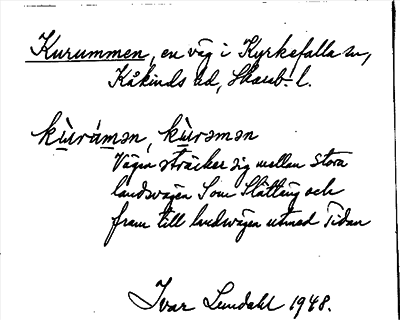 Kurummen, en väg i Kyrkefalla sn,
Kåkinds hd, Skarab. l.
kùrámən, kùrəmən
Vägen sträcker sig mellan stora
landsvägen Som Slättäng och
fram till landsvägen utmed Tidan
Ivar Lundahl 1948.